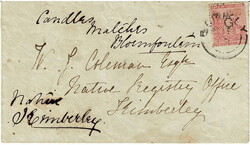 Candles
Matches
Bloemfontein
W. J. Coleman Esqr
Native Registry Office
Kimberley
Native
Kimberley